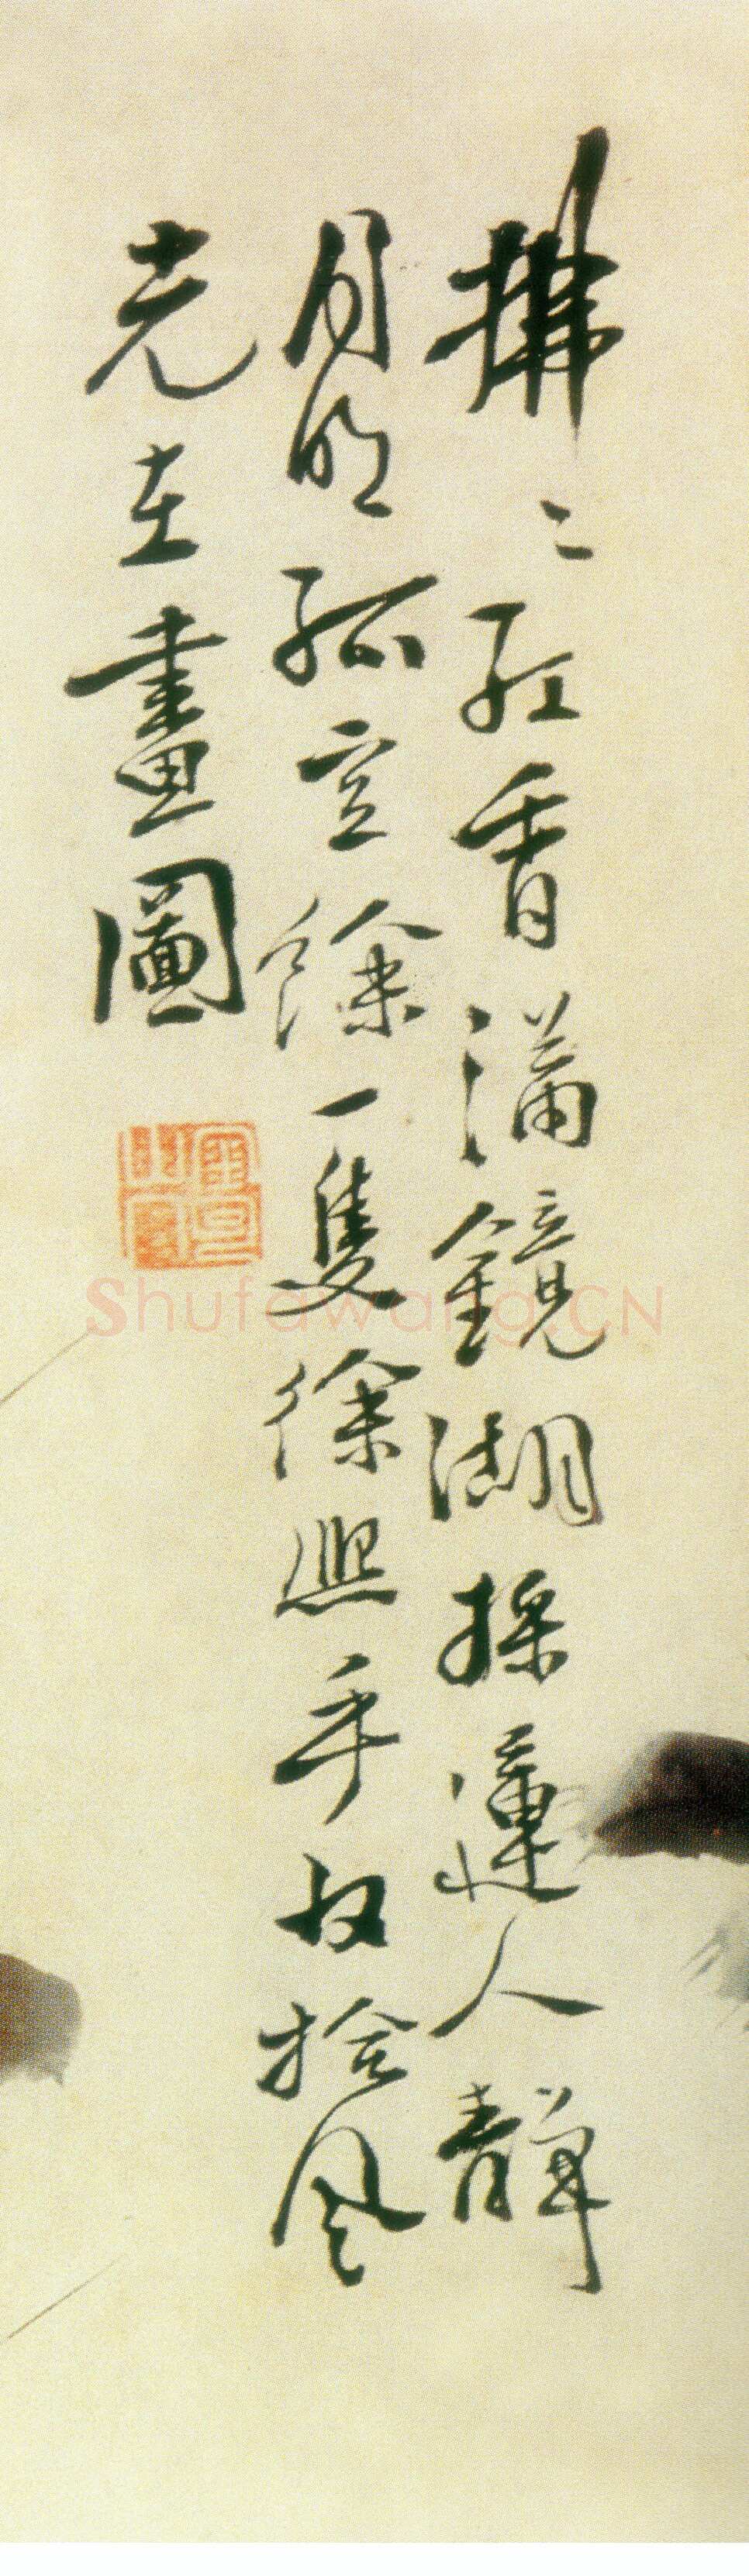 拂〻紅香滿鏡湖採蓮人靜
月明孤空餘一隻徐熙手收拾風
光在畫圖
Shufawang.CN